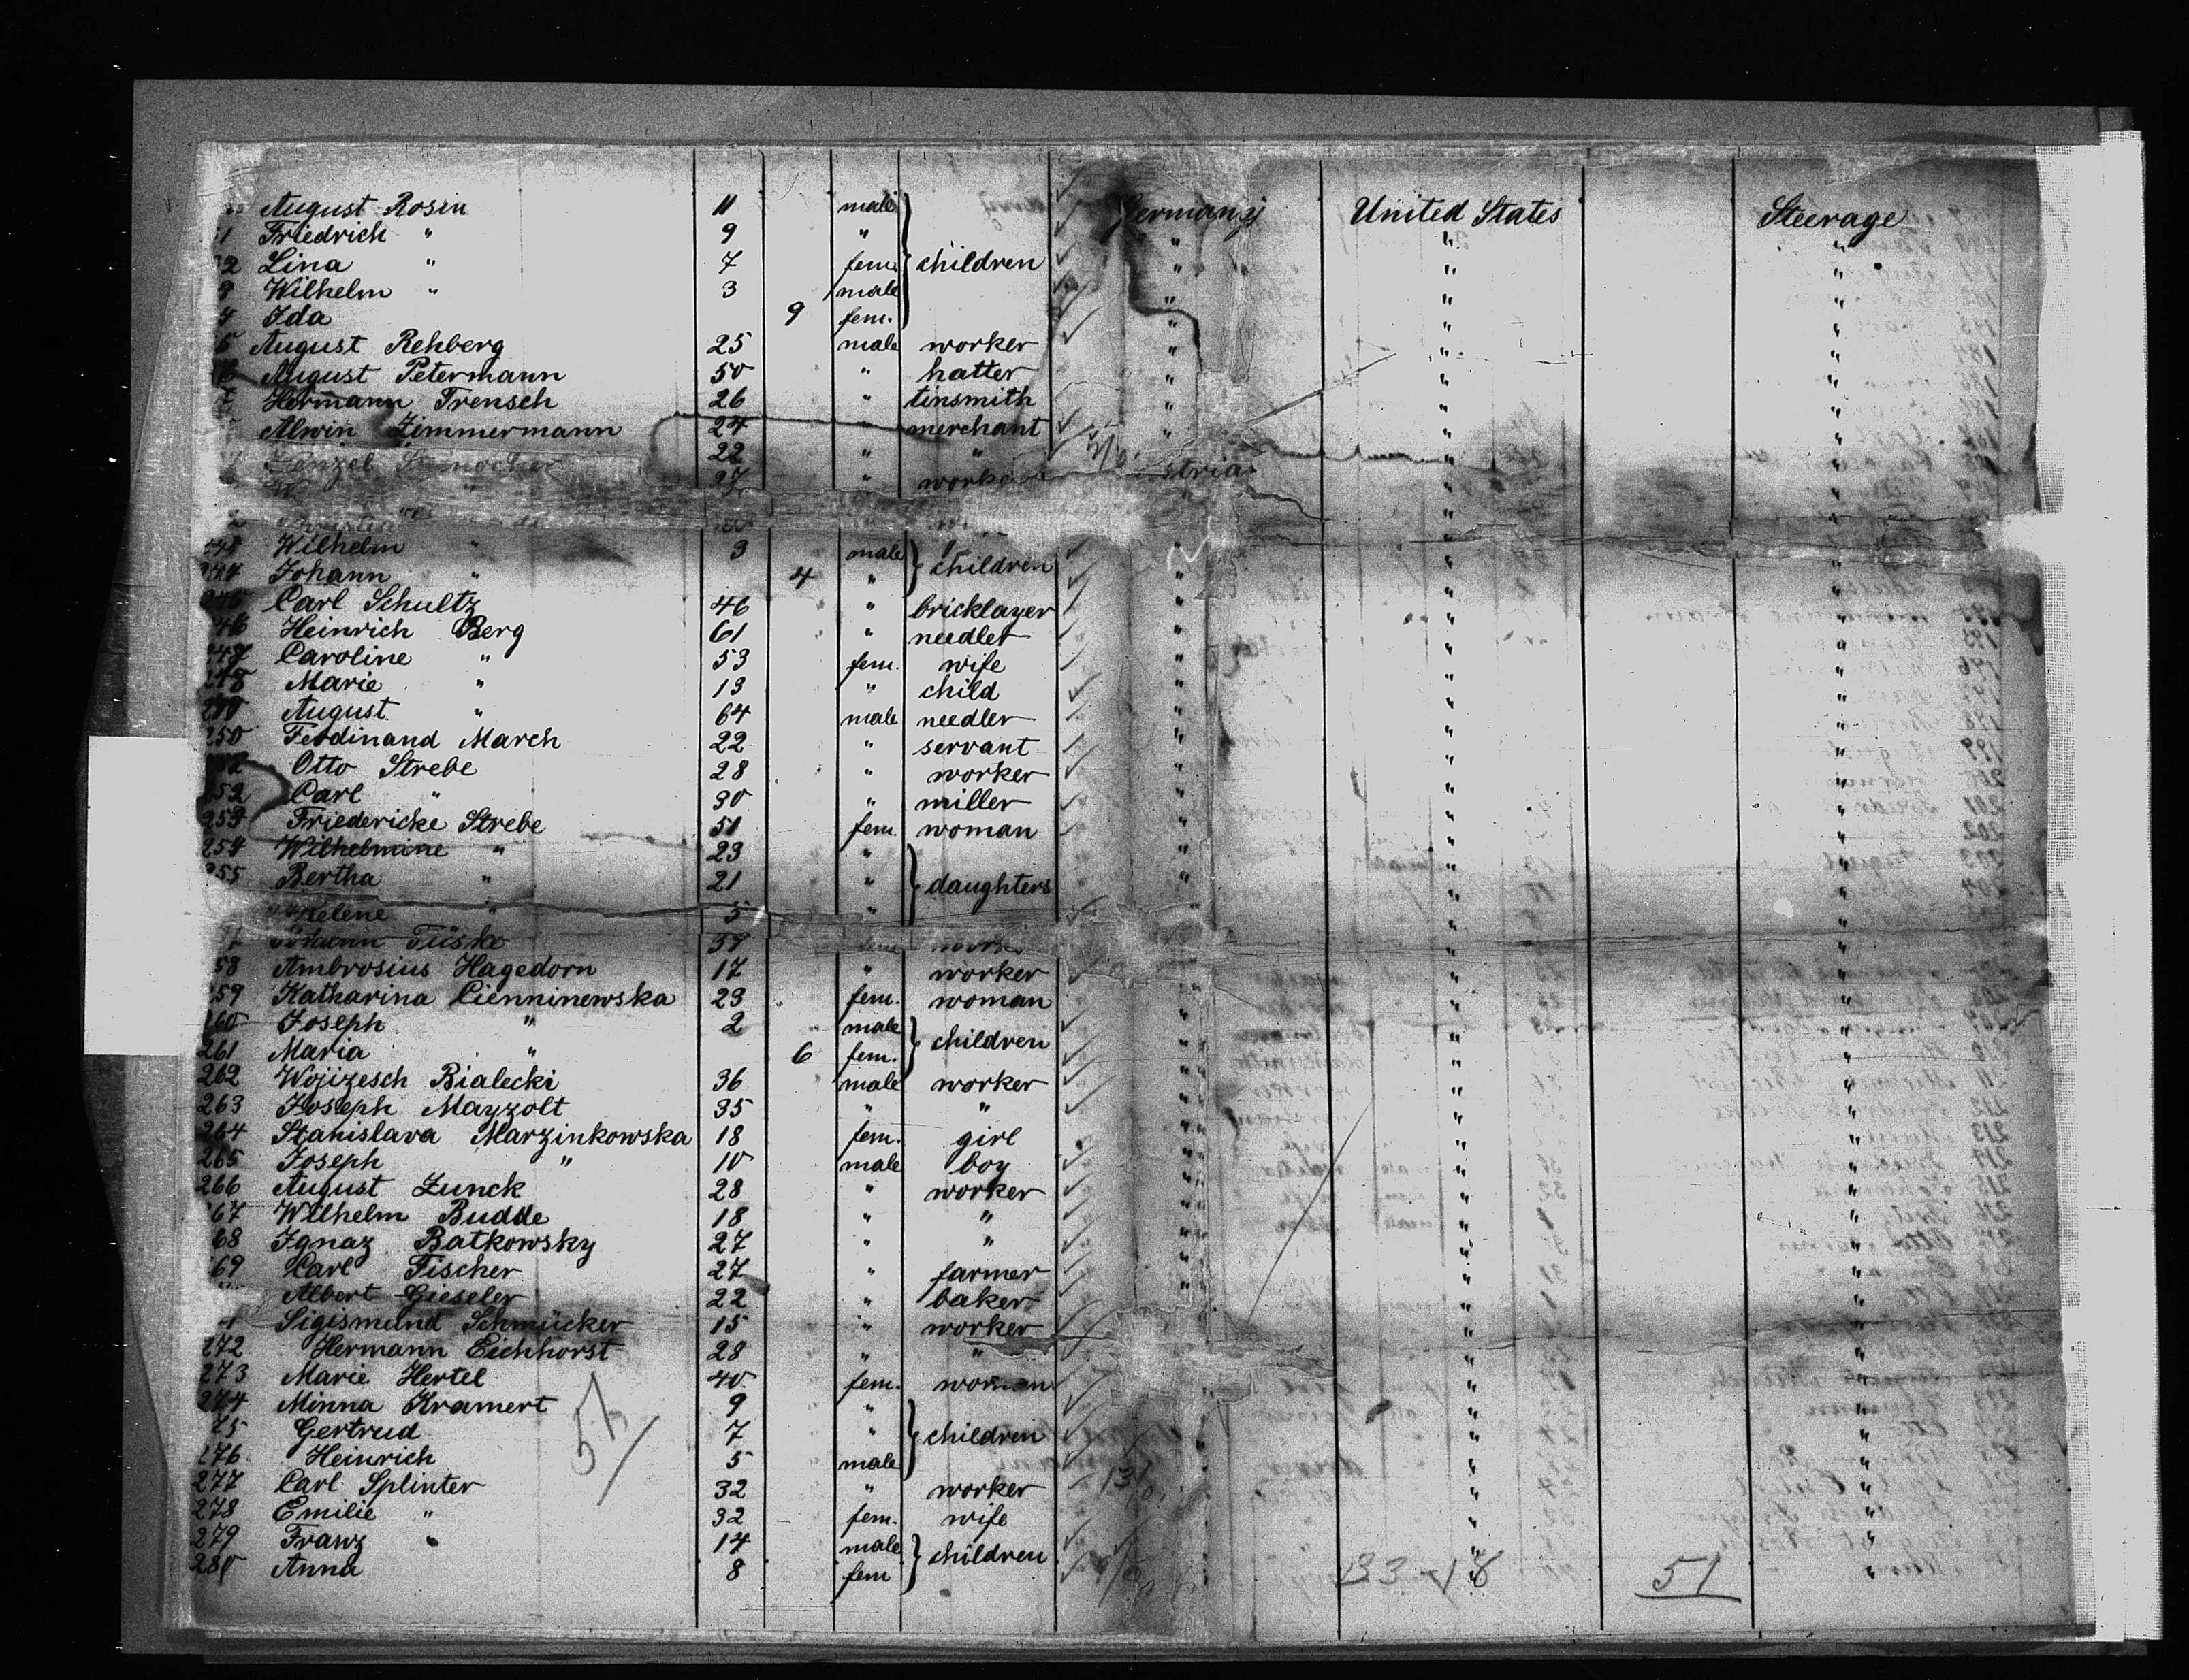 August Rosin 11 male Germany United States Steerage
Friedrich " 9 " " " "
2 Lina " 7 fem. children " " "
Wilhelm " 3 male " " "
4 Ida 9 fem. " " "
August Rehberg 25 male worker " " "
August Petermann 50 " hatter " " "
Hermann Trensch 26 " tinsmith " " "
Alwin Zimmermann 24 " merchant " " "
22 " " " "
27 " worker stria " "
Wilhelm " 3 male " " "
244 Johann " 4 " children " " "
Carl Schultz 46 " bricklayer " " "
46 Heinrich Berg 61 " needler " " "
247 Caroline " 53 fem. wife " " "
248 Marie " 13 " child " " "
August " 64 male needler " " "
250 Ferdinand March 22 " servant " " "
Otto Strebe 28 " worker " " "
252 Carl " 30 " miller " " "
253 Friedericke Strebe 51 fem. woman " " "
254 Wilhelmine " 23 " " " "
255 Bertha " 21 " daughters " " "
Helene " 5 " " "
Tüske
58 Ambrosius Hagedorn 17 " worker " " "
259 Katharina Cienninewska 23 fem. woman " " "
260 Joseph " 2 male children " " "
261 Maria " 6 fem. " " "
262 Wojizesch Bialecki 36 male worker " " "
263 Joseph Mayzolt 35 " " " " "
264 Stanislava Marzinkowska 18 fem. girl " " "
265 Joseph " 10 male boy " " "
266 August Zunck 28 " worker " " "
67 Wilhelm Budde 18 " " " " "
68 Ignaz Batkowsky 27 " " " " "
69 Carl Fischer 27 " farmer " " "
Albert Gieseler 22 " baker " " "
Sigismund Schmücker 15 " worker " "
272 Hermann Eichhorst 28 " " " "
273 Marie Hertel 40 fem. woman " "
274 Minna Kramert 9 " " "
75 Gertrud 7 " children " " "
276 Heinrich 5 male " " "
277 Carl Splinter 32 " worker " "
278 Emilie " 32 fem. wife " " "
279 Franz " 14 male children " " "
280 Anna 8 fem " " "
51